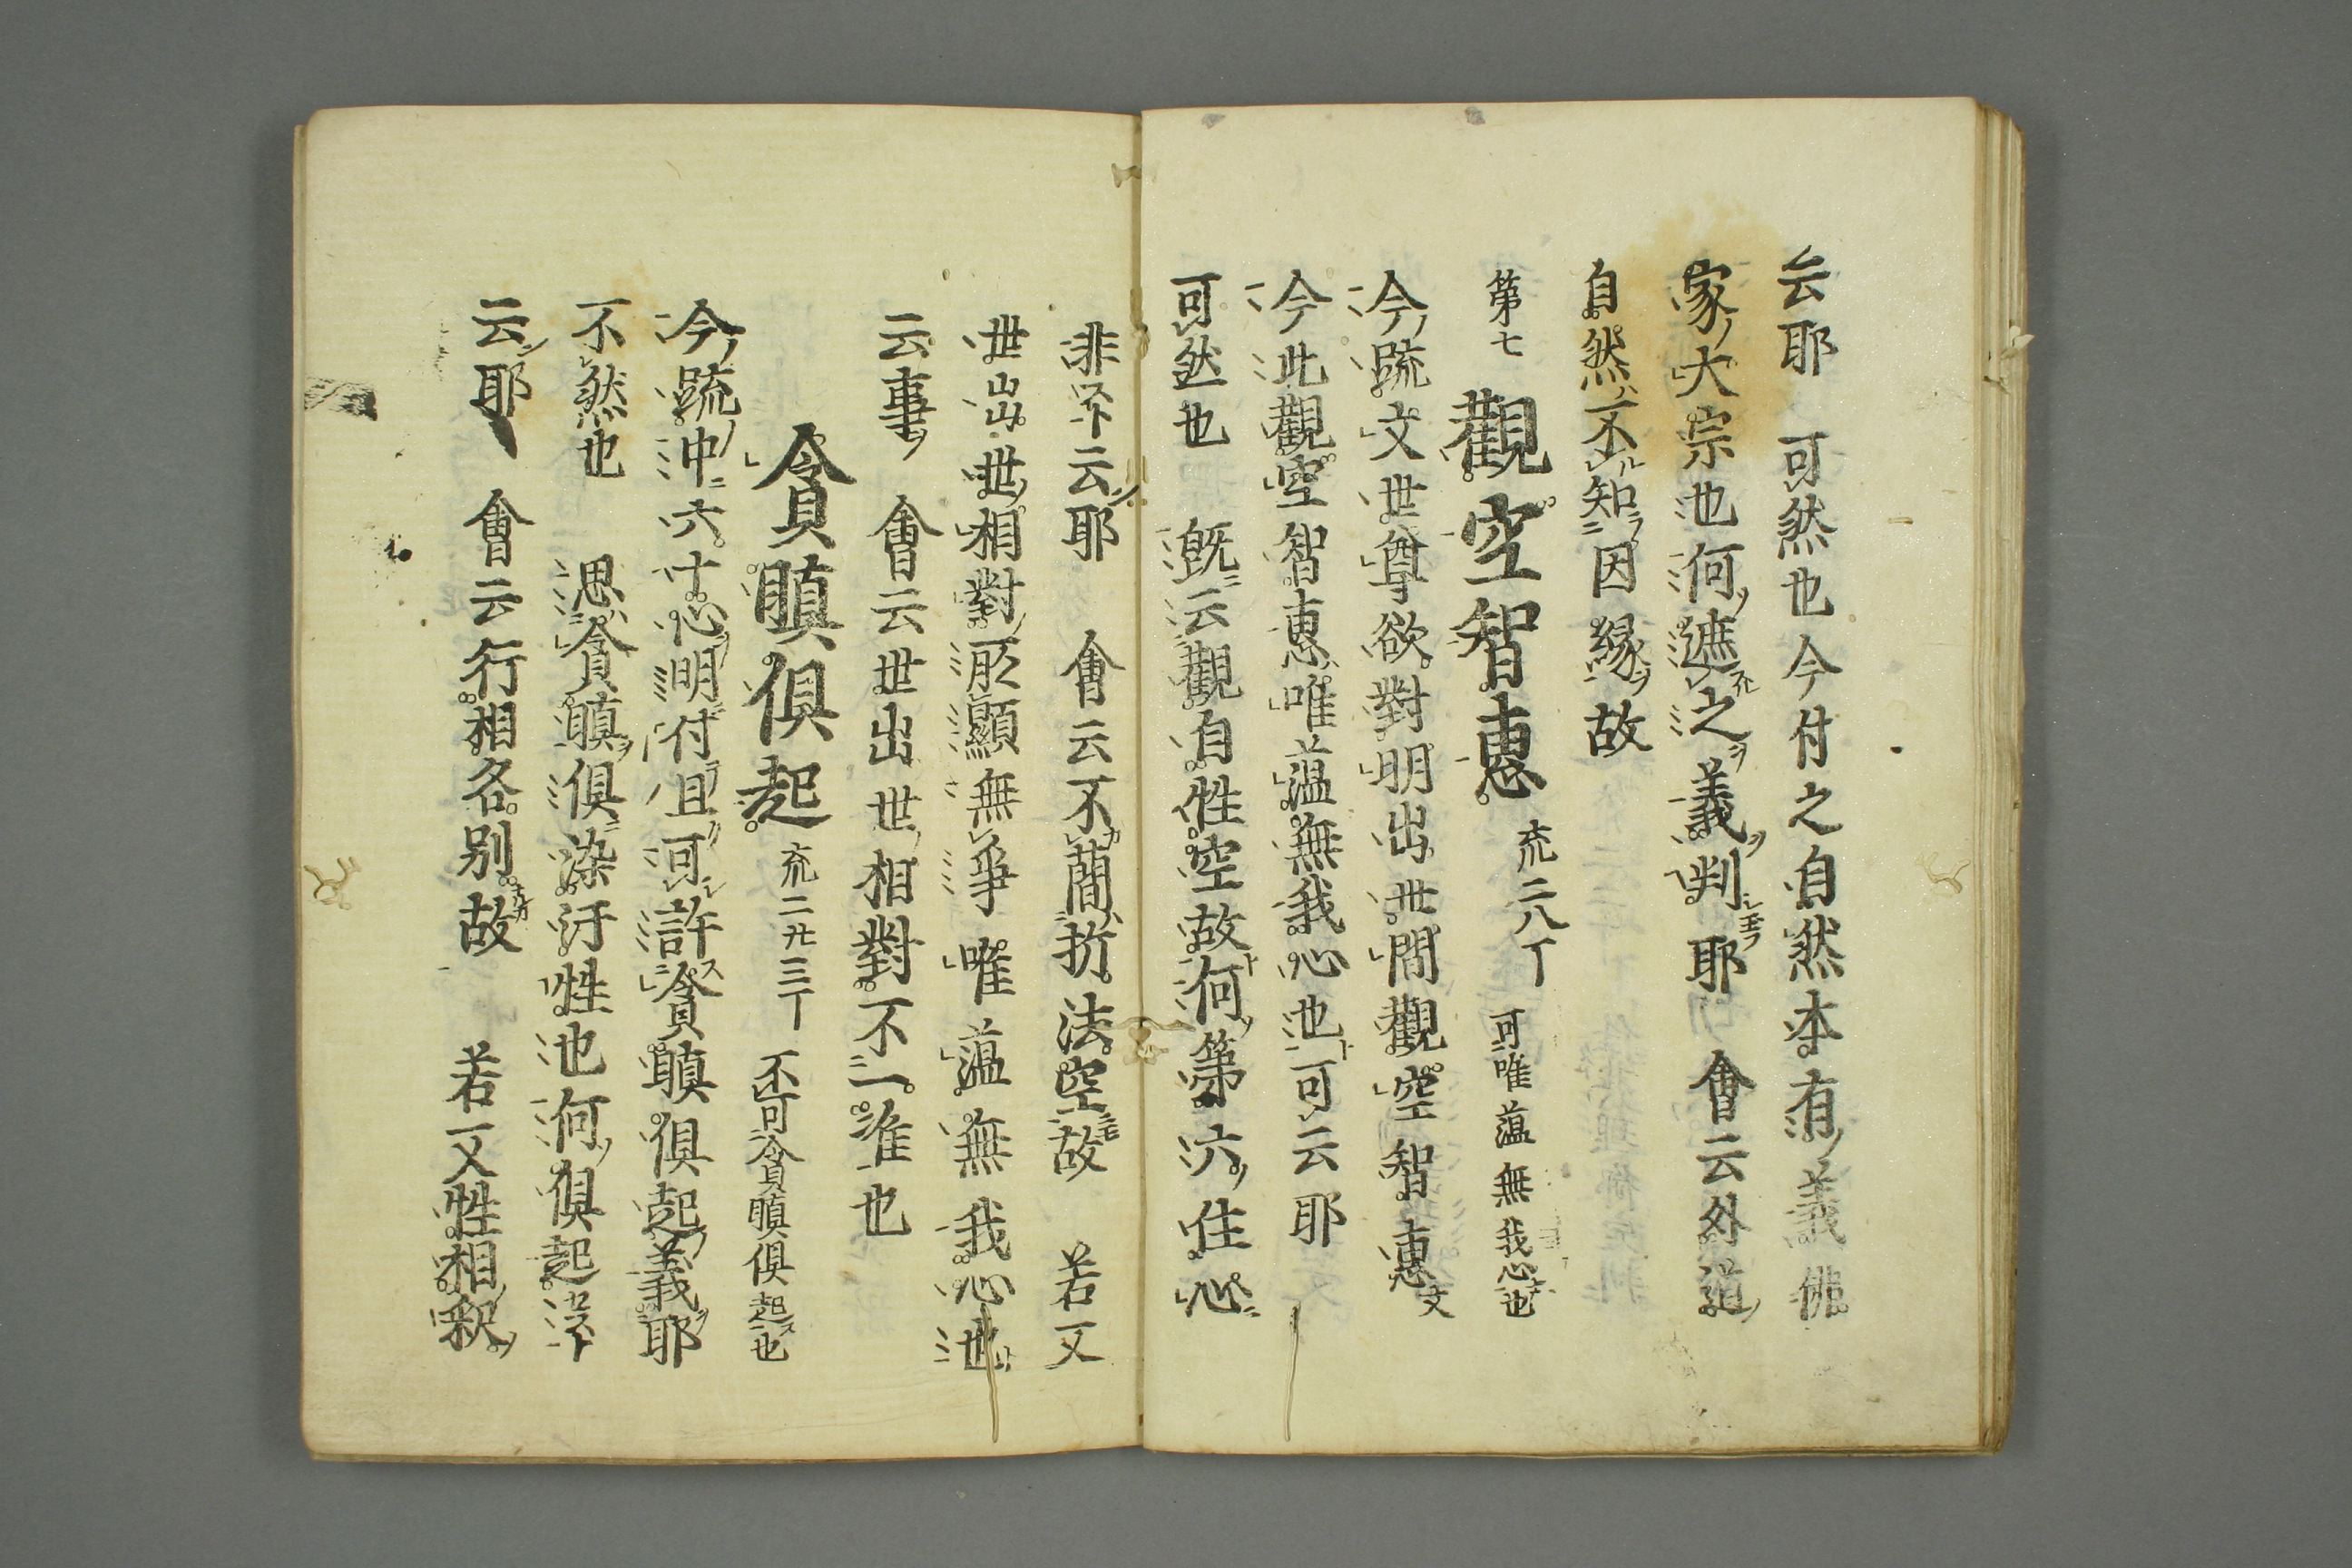 云耶 可然也今付之自然本有ノ義佛
家ノ大宗也何ノ遮之ヲ義ヲ判耶 會云外道ノ
自然ハ不ル知ラ因縁ヲ故
第七 觀空智惠 疏二八丁 可唯薀無我心也
今ノ疏文世尊欲對明出世間觀空智惠文
今此觀空智惠ハ唯薀無我心也ト可云耶
可然也 既ニ云觀自性空故何ソ第六ノ住心ニ
非スト云ン耶 會云不簡ハ折法空故 若又
世出世ノ相對ノ所顯無爭 唯薀無我心也
云事ノ 會云世出世ノ相對不一准也
貪瞋俱起 疏二卅三丁 不可貪瞋俱起ス也
今ノ疏ノ中ニ六十心ヲ明付テ且ク可シ許ス貪瞋俱起ノ義ヲ耶
不然也 思ハ貪瞋ヲ俱ニ染汙性也何ソ俱起セスト
云ン耶 會云行相各別故 若又性相ノ釈ノ